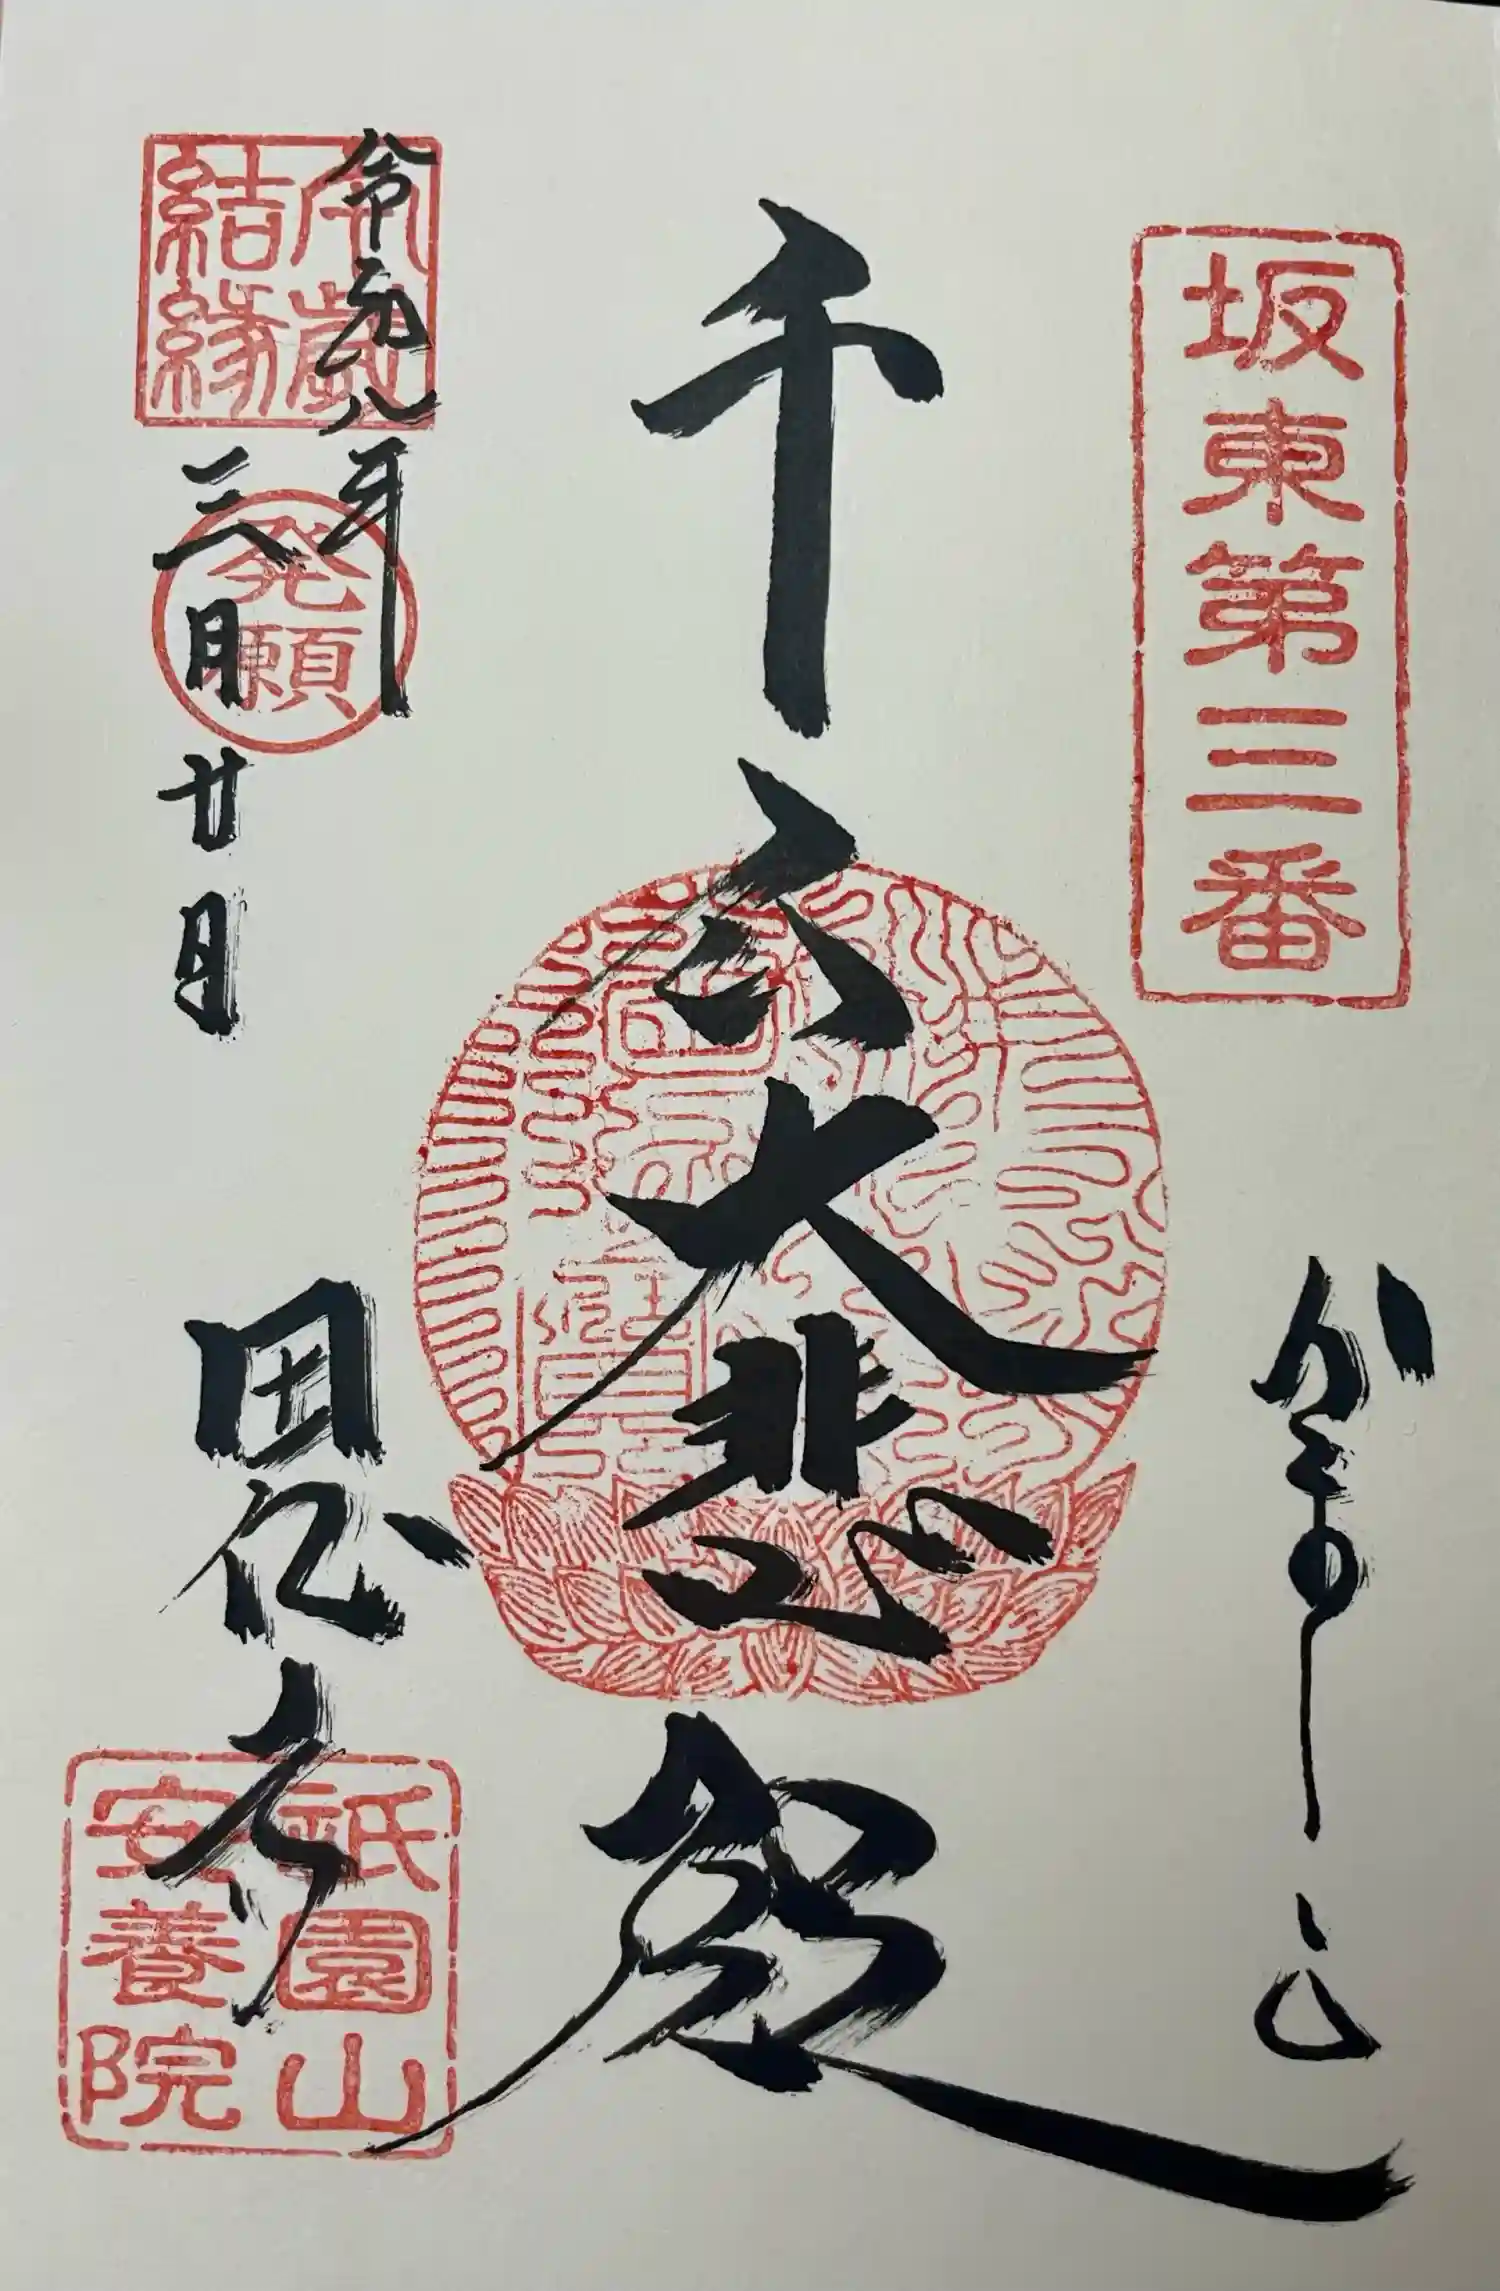 坂東第三番
千大悲殿
午歳
結縁
発願
令和八年
三月廿日
田代寺
祇園山
安養院